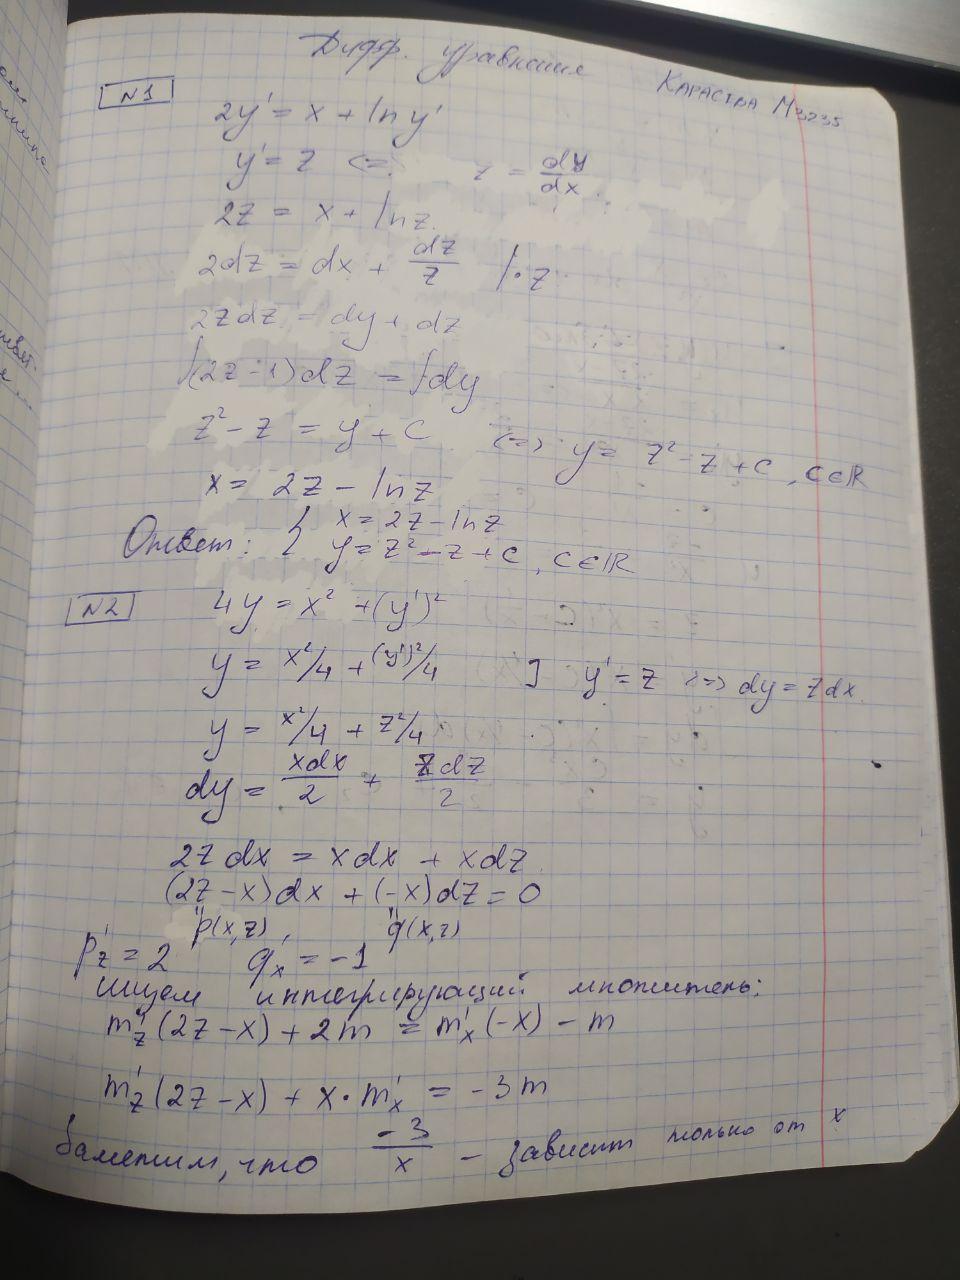 Дифф. уравнения
Караства М3235
N1
2y' = x + ln y'
y' = z <=> z = dy/dx
2z = x + ln z
2dz = dx + dz/z |·z
2zdz = dy + dz
∫(2z-1)dz = ∫dy
z² - z = y + C <=> y = z² - z + C, C∈ℝ
x = 2z - ln z
Ответ: { x = 2z - ln z
y = z² - z + C, C∈ℝ
N2
4y = x² + (y')²
y = x²/4 + (y')²/4 ] y' = z <=> dy = zdx
y = x²/4 + z²/4
dy = xdx/2 + zdz/2
2zdx = xdx + xdz
(2z-x)dx + (-x)dz = 0
p(x,z), q(x,z)
p'z = 2 q'x = -1
ищем интегрирующий множитель:
m'z(2z-x) + 2m = m'x(-x) - m
m'z(2z-x) + x·m'x = -3m
Заметим, что -3/x - зависит только от x